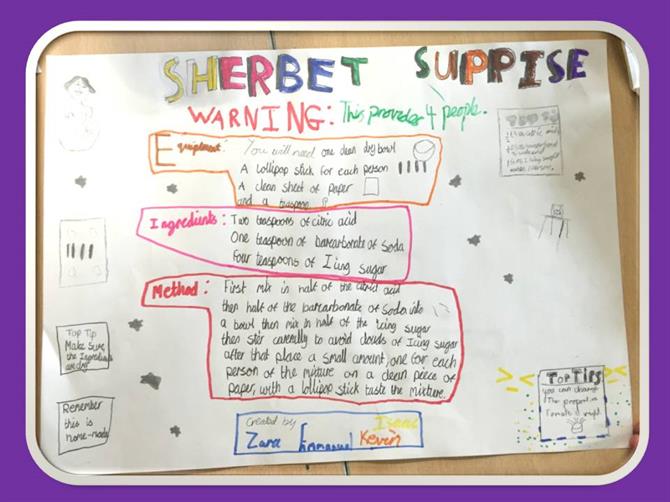 SHERBET SUPPISE
WARNING: This provides 4 people.
Equipment: You will need one clean dry bowl
A lollipop stick for each person
A clean sheet of paper
and a teaspoon
Ingredients: Two teaspoons of citric acid
One teaspoon of barcarbonate of Soda
Four teaspoons of Icing sugar
Method: First mix in half of the citric acid
then half of the barcarbonate of Soda into
a bowl then mix in half of the Icing sugar
then stir carefully to avoid clouds of Icing sugar
after that place a small amount, one for each
person of the mixture on a clean piece of
paper, with a lollipop stick taste the mixture.
Top Tip
Make Sure
the Ingredients
are dry
Remember
this is
home-made
Top Tips
you can change
The
right
Created by
Isaac
Zara Emmanuel Kevin